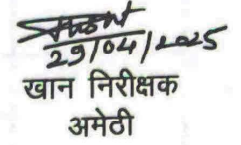 29/04/2025
खान निरीक्षक
अमेठी